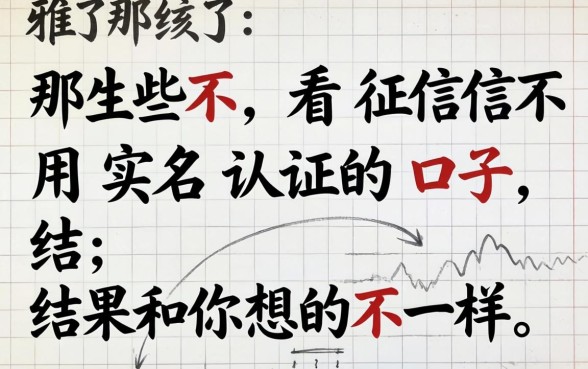 雅了那绥了：
那生些不，看 征信信不
用 实名 认证的 口子，
结；
结果和你想的不一样。